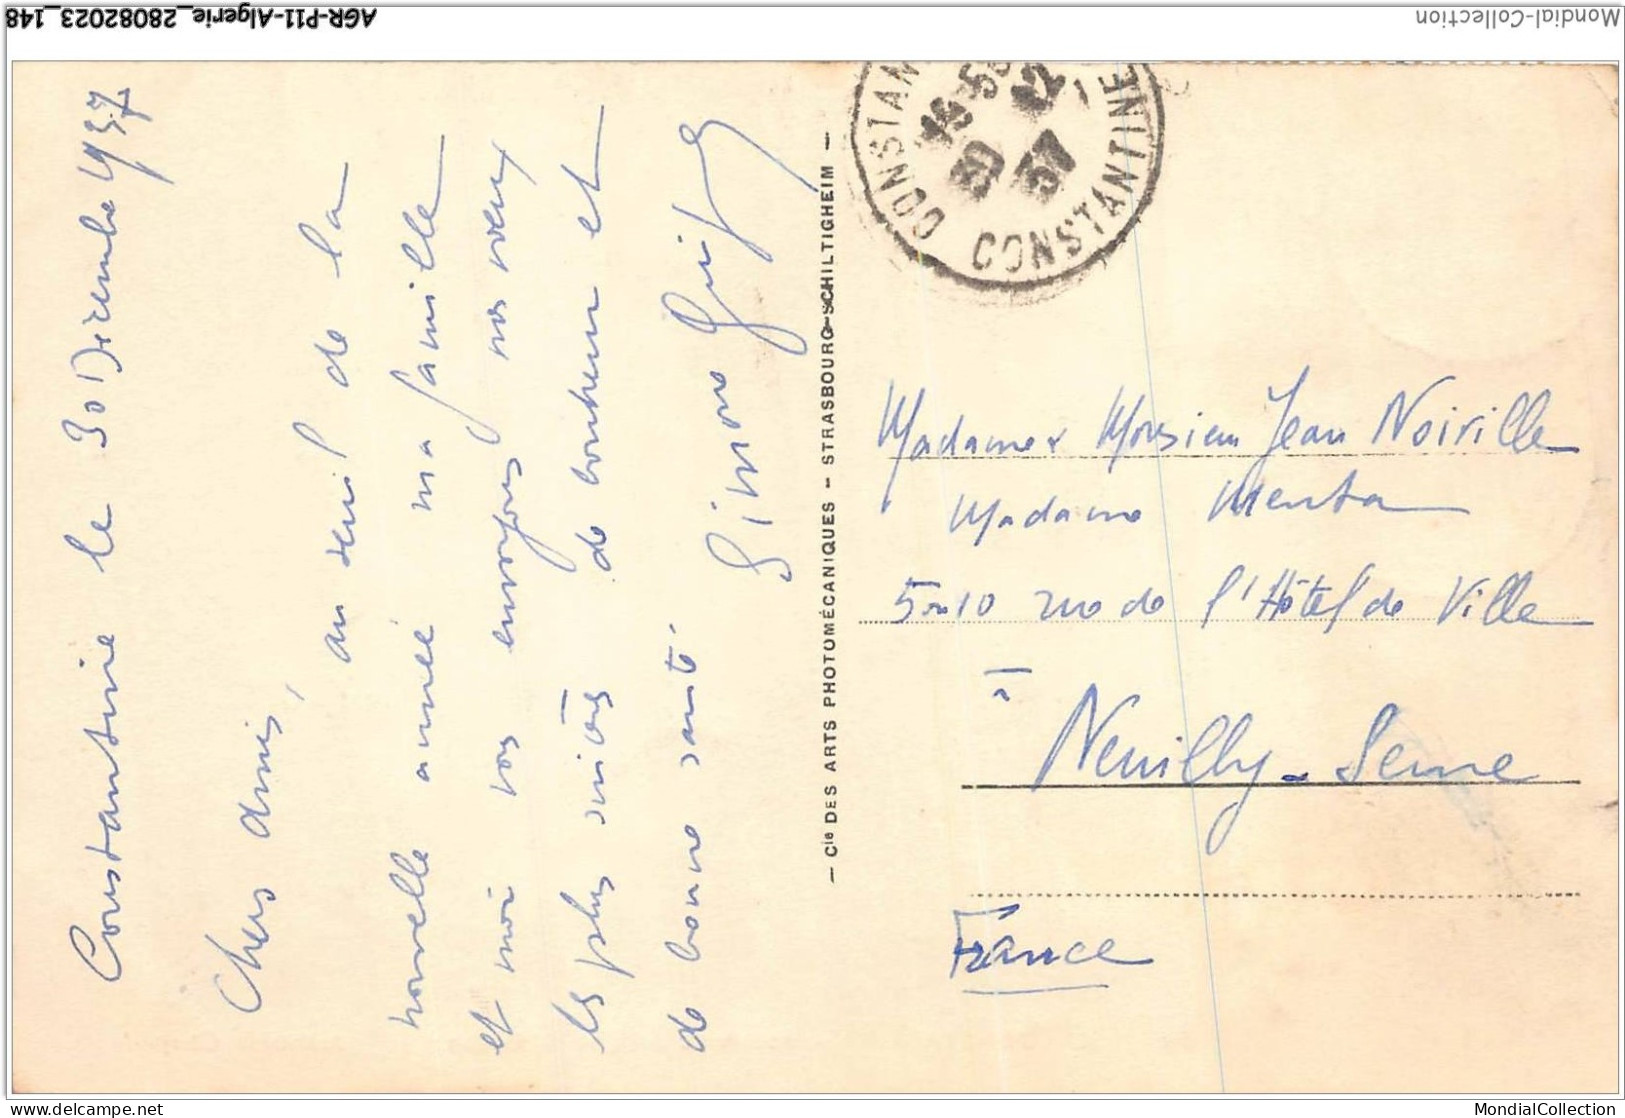 AGR-P11-Algerie_28082023_148
Mondial-Collection
Constantine le 30 Décembre 1937
Chers amis,
au seuil de la
nouvelle année ma famille
et moi vous envoyons nos voeux
les plus sincères de bonheur et
de bonne santé.
Simone
— Cie DES ARTS PHOTOMÉCANIQUES - STRASBOURG-SCHILTIGHEIM —
CONSTANTINE
CONSTANTINE
30 12
37
Madame & Monsieur Jean Noirville
Madame Menta
5 10 rue de l'Hôtel de Ville
à
Neuilly - Seine
France
www.delcampe.net
MondialCollection